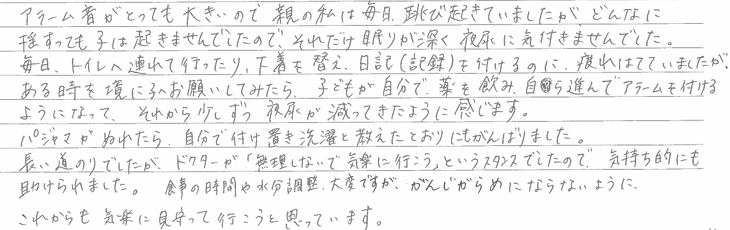 アラーム音がとっても大きいので親の私は毎日、跳び起きていましたが、どんなに
揺すっても子は起きませんでしたので、それだけ眠りが深く夜尿に気付きませんでした。
毎日、トイレへ連れて行ったり、下着を替え、日記(記録)を付けるのに、疲れはてていましたが、
ある時を境に子へお願いしてみたら、子どもが自分で、薬を飲み、自ら進んでアラームを付ける
ようになって、それから少しずつ夜尿が減ってきたように感じます。
パジャマがぬれたら、自分で付け置き洗濯と教えたとおりにもがんばりました。
長い道のりでしたが、ドクターが「無理しないで気楽に行こう」というスタンスでしたので、気持ち的にも
助けられました。食事の時間や水分調整、大変ですが、がんじがらめにならないように、
これからも気楽に見守って行こうと思っています。